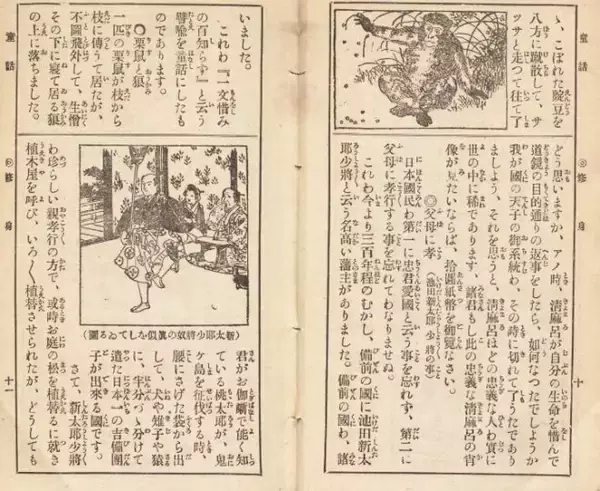 童話
ゝ、こぼれた豌豆を
八方に蹴散して、サ
ッサと走つて往て了
いました。
これわ『一文惜み
の百知らず』と云う
譬喩を童話にしたも
のであります。
◎栗鼠と狼
一匹の栗鼠が枝から
枝に傳うて居たが、
不圖飛外して、生憎
その下に寢て居る狼
の上に落ちました。
童話
◎修身
十
どう思いますか、アノ時、清麻呂が自分の生命を惜んで
道鏡の目的通りの返事をしたら、如何なつたでしようか
我が國の天子の御系統わ、その時に切れて了うたであり
ましよう、それを思うと、清麻呂ほどの忠義な人わ實に
世の中に稀であります、諸君もし此の忠義な清麻呂の肖
像が見たいならば、拾圓紙幣を御覽なさい。
◎父母に孝(池田新太郎少將の事)
日本國民わ第一に忠君愛國と云う事を忘れず、第二に
父母に孝行する事を忘れてわなりませぬ。
これわ今より三百年程のむかし、備前の國に池田新太
郎少將と云う名高い藩主がありました。備前の國わ、諸
君がお伽噺で能く知
ている桃太郎が、鬼
ヶ島を征伐する時、
腰にさげた袋から出
して、犬や雉子や猿
に、半分づゝ分けて
遣た日本一の吉備團
子が出來る國です。
さて、新太郎少將
わ珍らしい親孝行の方で、或時お庭の松を植替るに就き
植木屋を呼び、いろ〱植替させられたが、どうしても
(新太郎少將奴の眞似をなしてゐる圖)
◎修身
十一